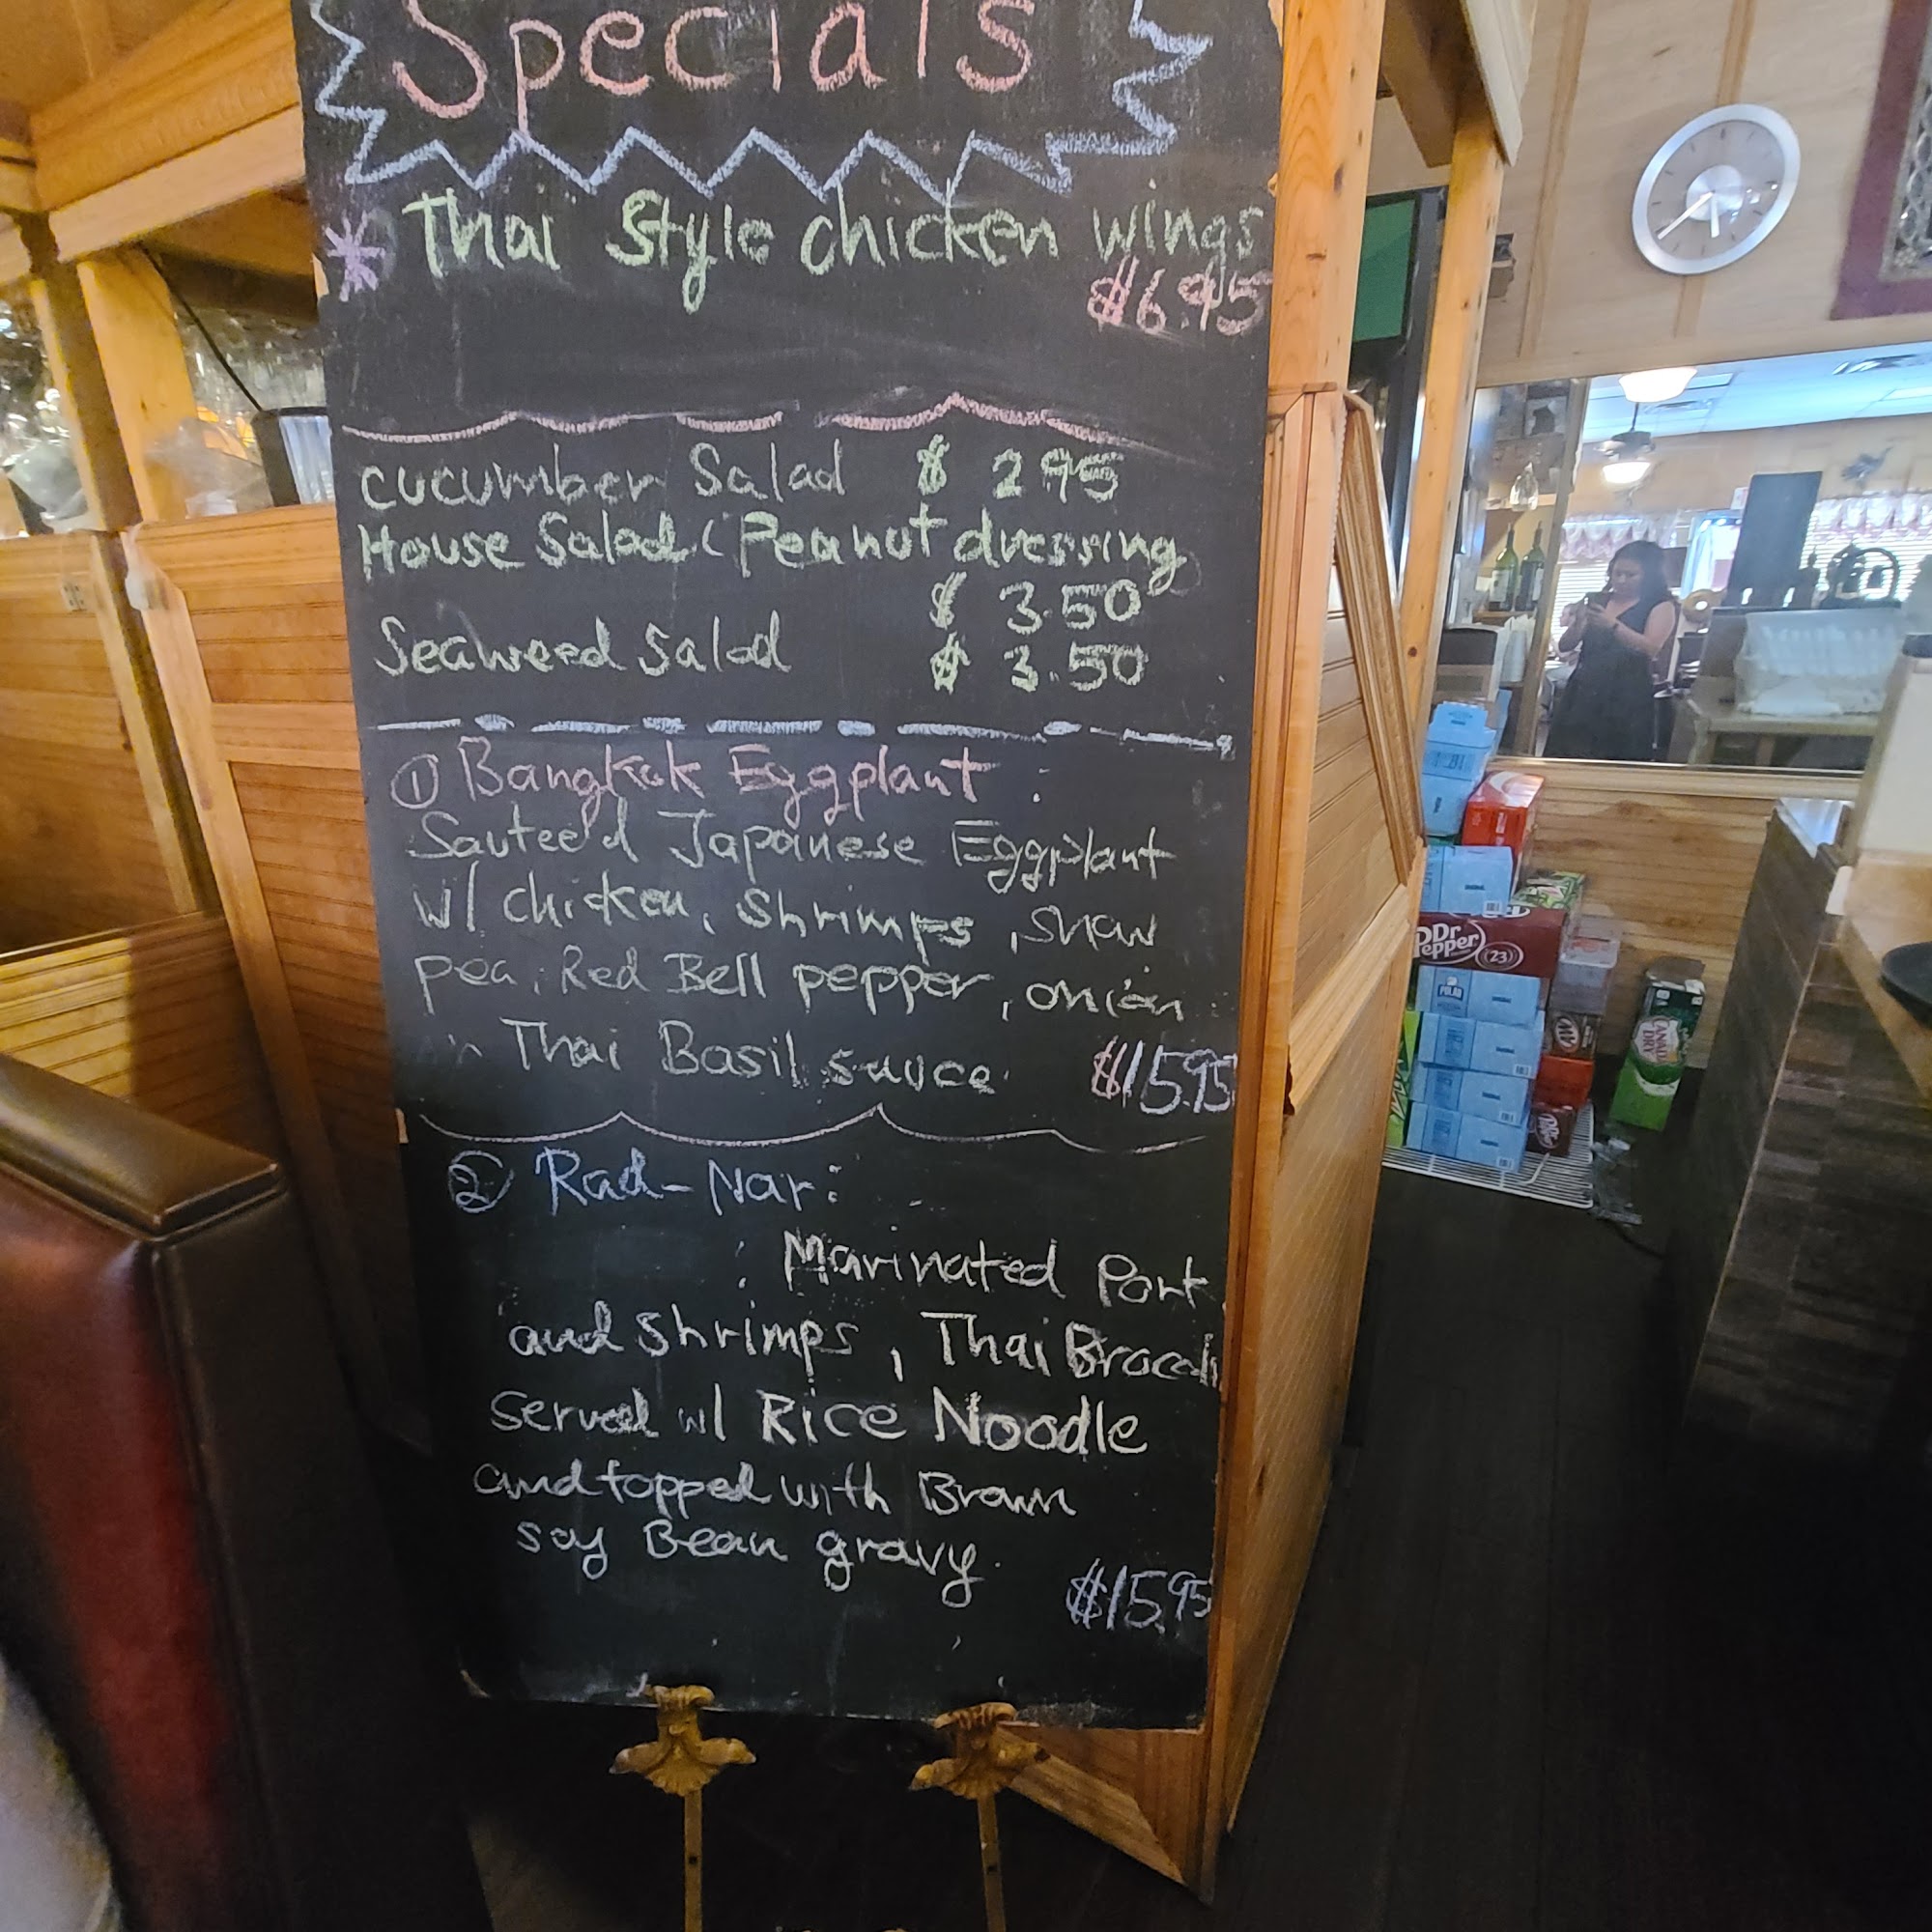 Specials
* Thai Style chicken wings
$6.95
cucumber Salad $ 2.95
House Salad (Peanut dressing
$ 3.50
Seaweed Salad $ 3.50
① Bangkok Eggplant :
Sauteed Japanese Eggplant
w/ chicken, Shrimps, snow
pea, Red Bell pepper, onion
in Thai Basil sauce $15.95
② Rad-Nar:
: Marinated Pork
and shrimps, Thai Brocoli
served w/ Rice Noodle
and topped with Brown
soy Bean gravy.
$15.95
Dr
Pepper
23
A&W
CANADA
DRY
Dr